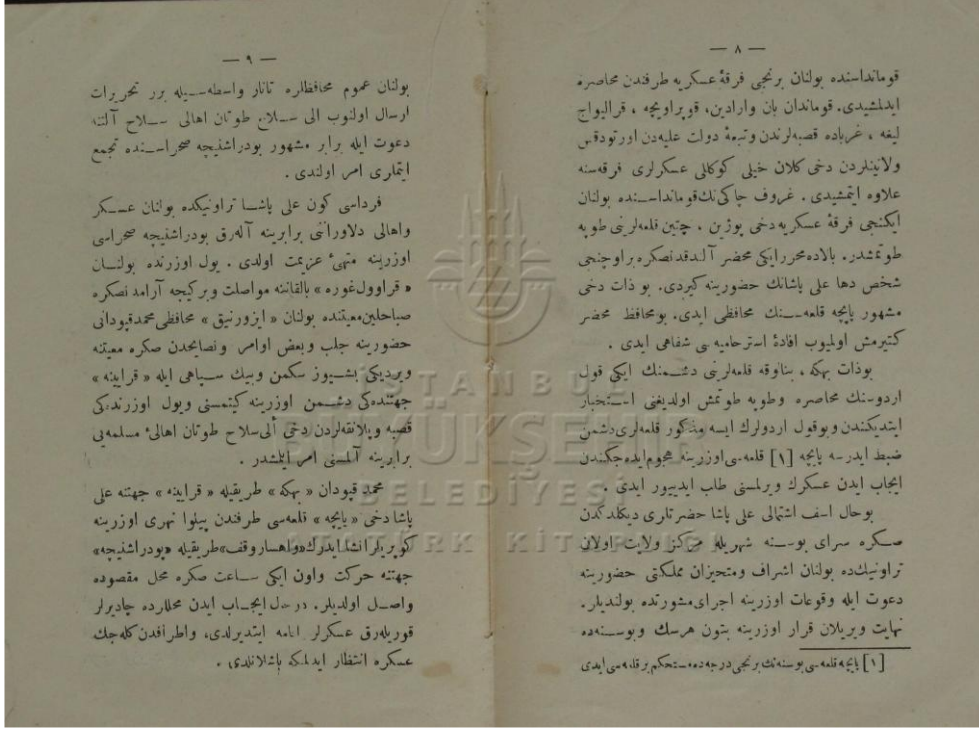 — ٨ —
قومانداسنده بولنان برنجی فرقهٔ عسکریه طرفندن محاصره
ایدلمشیدی. قوماندان بان وارادین، قوپراویچه ، قرالیواج
لیغه ، غرباده قصبه‌لرندن وتبعهٔ دولت علیه‌دن اورتودقس
ولاتینلردن دخی کلان خیلی کوکللی عسکرلری فرقه‌سنه
علاوه ایتمشیدی . غروف چاکی‌نك قومانداسنده بولنان
ایکنجی فرقهٔ عسکریه دخی پوژین ، چتین قلعه‌لرینی طوپه
طوتمشدر. بالاده محرر ایکی محضر آلندقدنصکره براوچنجی
شخص دها علی پاشانك حضورینه کیردی. بو ذات دخی
مشهور پایچه قلعه‌سنك محافظی ایدی. بومحافظ محضر
کتیرمش اولمیوب افادهٔ استرحامیه‌سی شفاهی ایدی .
بوذات بهکه ، بنالوقه قلعه‌لرینی دشمنك ایکی قول
اردوسنك محاصره وطوپه طوتمش اولدیغنی استخبار
ایتدیکندن وبوقول اردولرك ایسه مذکور قلعه‌لری دشمن
ضبط ایدرسه پایچه [١] قلعه‌سی اوزرینه هجوم ایده‌جکندن
ایجاب ایدن عسکرك ویرلمسنی طلب ایدییور ایدی .
بوحال اسف اشتمالی علی پاشا حضرتلری دیکلدکدن
صکره سرای بوسنه شهریله مرکز ولایت اولان
تراونیك‌ده بولنان اشراف ومتحیزان مملکتی حضورینه
دعوت ایله وقوعات اوزرینه اجرای مشورتده بولندیلر.
نهایت ویریلان قرار اوزرینه بتون هرسك وبوسنه‌ده
[١] پایچه قلعه‌سی بوسنه‌نك برنجی درجه‌ده مستحکم بر قلعه‌سی ایدی
— ٩ —
بولنان عموم محافظلره تاتار واسطه‌سیله برر تحریرات
ارسال اولنوب الی سلاح طوتان اهالی سلاح آلتنه
دعوت ایله برابر مشهور بودراشنیچه صحراسنده تجمع
ایتملری امر اولندی .
فرداسی کون علی پاشا تراونیکده بولنان عسکر
واهالی دلاوراننی برابرینه آله‌رق بودراشنیچه صحراسی
اوزرینه متهیٔ عزیمت اولدی . یول اوزرنده بولنان
« قراوول‌غوره » بالقاننه مواصلت وبرکیجه آرامدنصکره
صباحلین معیتنده بولنان « ایزورنیق » محافظی محمدقپودانی
حضورینه جلب وبعض اوامر ونصایحدن صکره معیتنه
ویردیکی بشیوز سکمن وبیك سپاهی ایله « قراینه »
جهتنده‌کی دشمن اوزرینه کیتمسنی ویول اوزرنده‌کی
قصبه وپلانقه‌لردن دخی ألی سلاح طوتان اهالیٔ مسلمه‌یی
برابرینه آلمسنی امر ایلمشدر .
محمد قپودان « بهکه » طریقیله « قراینه » جهتنه علی
پاشا دخی « یایچه » قلعه‌سی طرفندن پیلوا نهری اوزرینه
کوپریلر انشا ایدرك «واهسار وقف» طریقیله «بودراشنیچه»
جهتنه حرکت واون ایکی ساعت صکره محل مقصوده
واصل اولدیلر. درحال ایجاب ایدن محللرده چادیرلر
قوریله‌رق عسکرلر اقامه ایتدیرلدی، واطرافدن کله‌جك
عسکره انتظار ایدلمکه باشلانلدی .